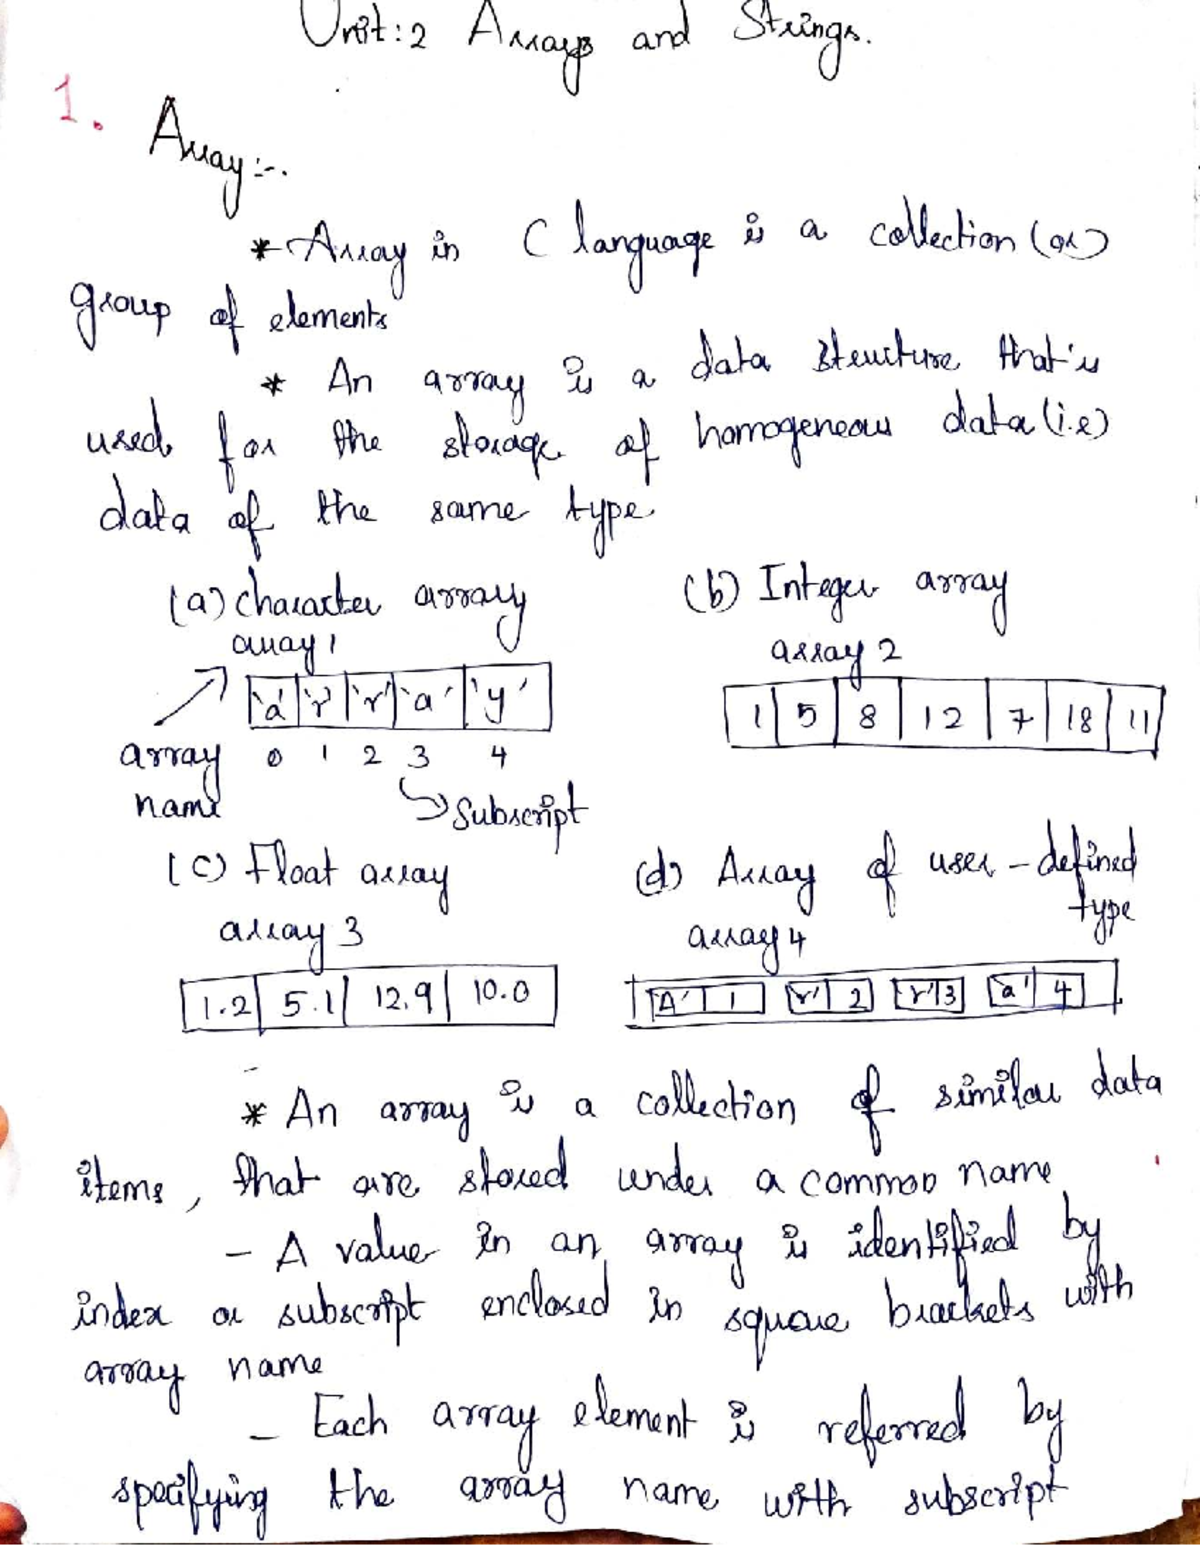 Unit:2 Arrays and Strings.
1. Array:-.
* Array in C language is a collection (or)
group of elements
* An array is a data structure that's
used for the storage of homogeneous data (i.e)
data of the same type
(a) character array (b) Integer array
array 1 array 2
'a' 'r' 'r' 'a' 'y' 1 5 8 12 7 18 11
array 0 1 2 3 4
name Subscript
(c) Float array (d) Array of user-defined
type
array 3 array 4
1.2 5.1 12.9 10.0 A' 1 r' 2 r' 3 a' 4
* An array is a collection of similar data
items, that are stored under a common name
- A value in an array is identified by
index or subscript enclosed in square brackets with
array name
- Each array element is referred by
specifying the array name with subscript